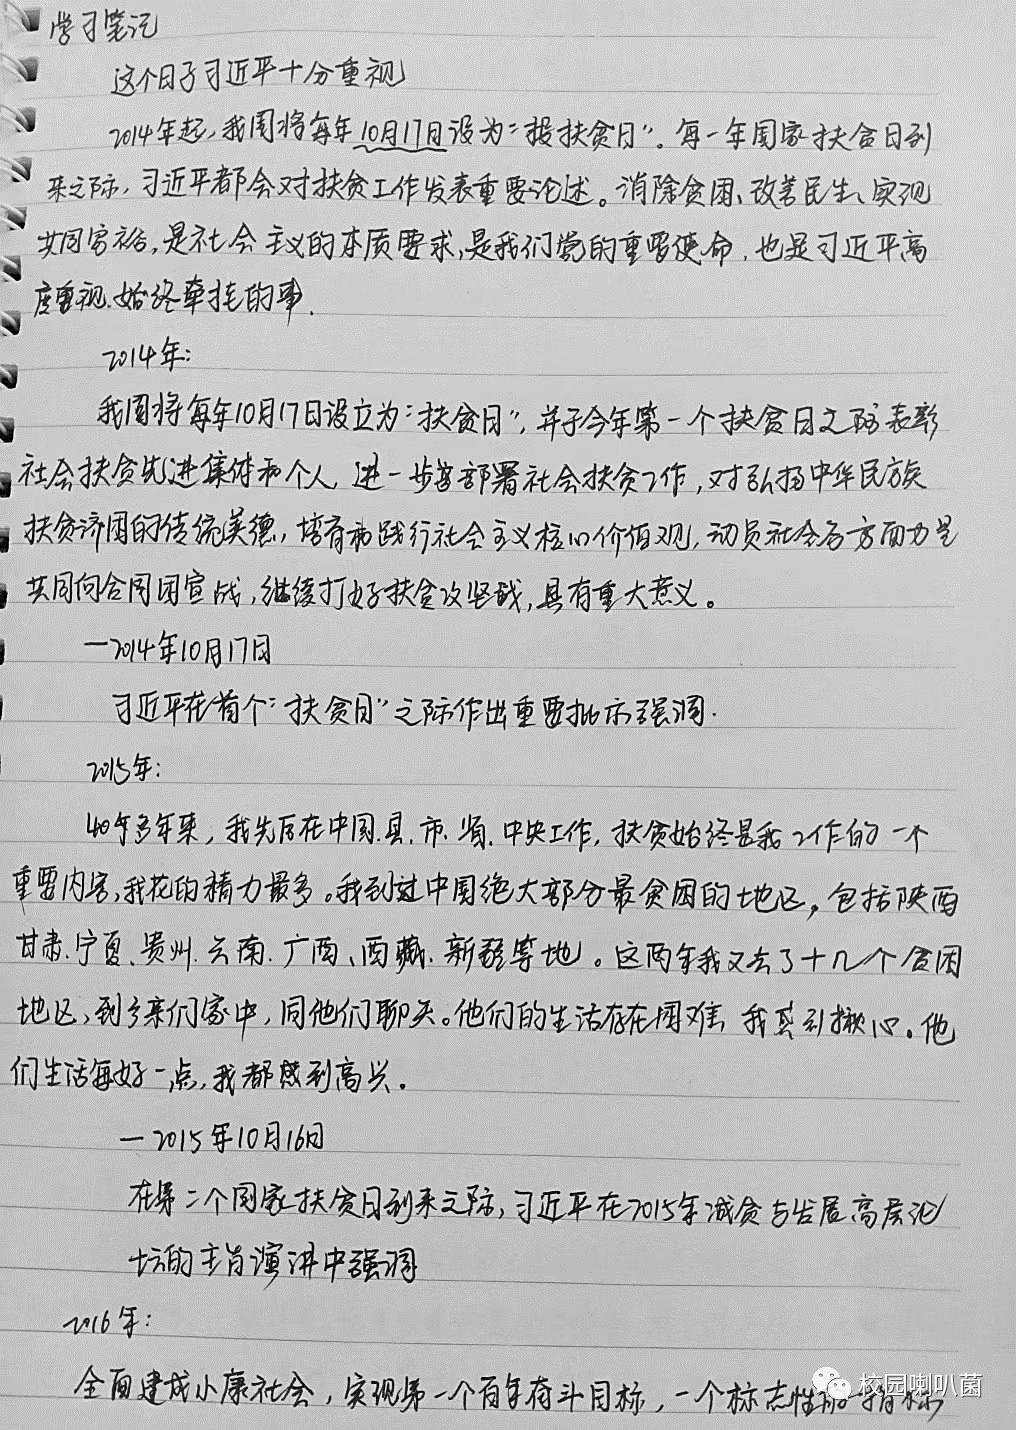 学习笔记
这个日子习近平十分重视
2014年起，我国将每年10月17日设为“扶贫日”。每一年国家扶贫日到
来之际，习近平都会对扶贫工作发表重要论述。消除贫困、改善民生、实现
共同富裕，是社会主义的本质要求，是我们党的重要使命，也是习近平高
度重视、始终牵挂的事.
2014年：
我国将每年10月17日设立为“扶贫日”，并于今年第一个扶贫日之际表彰
社会扶贫先进集体和个人，进一步部署社会扶贫工作，对弘扬中华民族
扶贫济困的传统美德，培育和践行社会主义核心价值观，动员社会各方面力量
共同向贫困宣战，继续打好扶贫攻坚战，具有重大意义。
—2014年10月17日
习近平在首个“扶贫日”之际作出重要批示强调.
2015年：
40年多年来，我先后在中国县.市.省.中央工作，扶贫始终是我工作的一个
重要内容，我花的精力最多。我到过中国绝大部分最贫困的地区，包括陕西
甘肃.宁夏.贵州.云南.广西、西藏.新疆等地。这两年我又去了十几个贫困
地区，到乡亲们家中，同他们聊天。他们的生活存在困难，我感到揪心。他
们生活每好一点，我都感到高兴。
—2015年10月16日
在第二个国家扶贫日到来之际，习近平在2015年减贫与发展高层论
坛的主旨演讲中强调
2016年：
全面建成小康社会，实现第一个百年奋斗目标，一个标志性的指标
校园喇叭菌